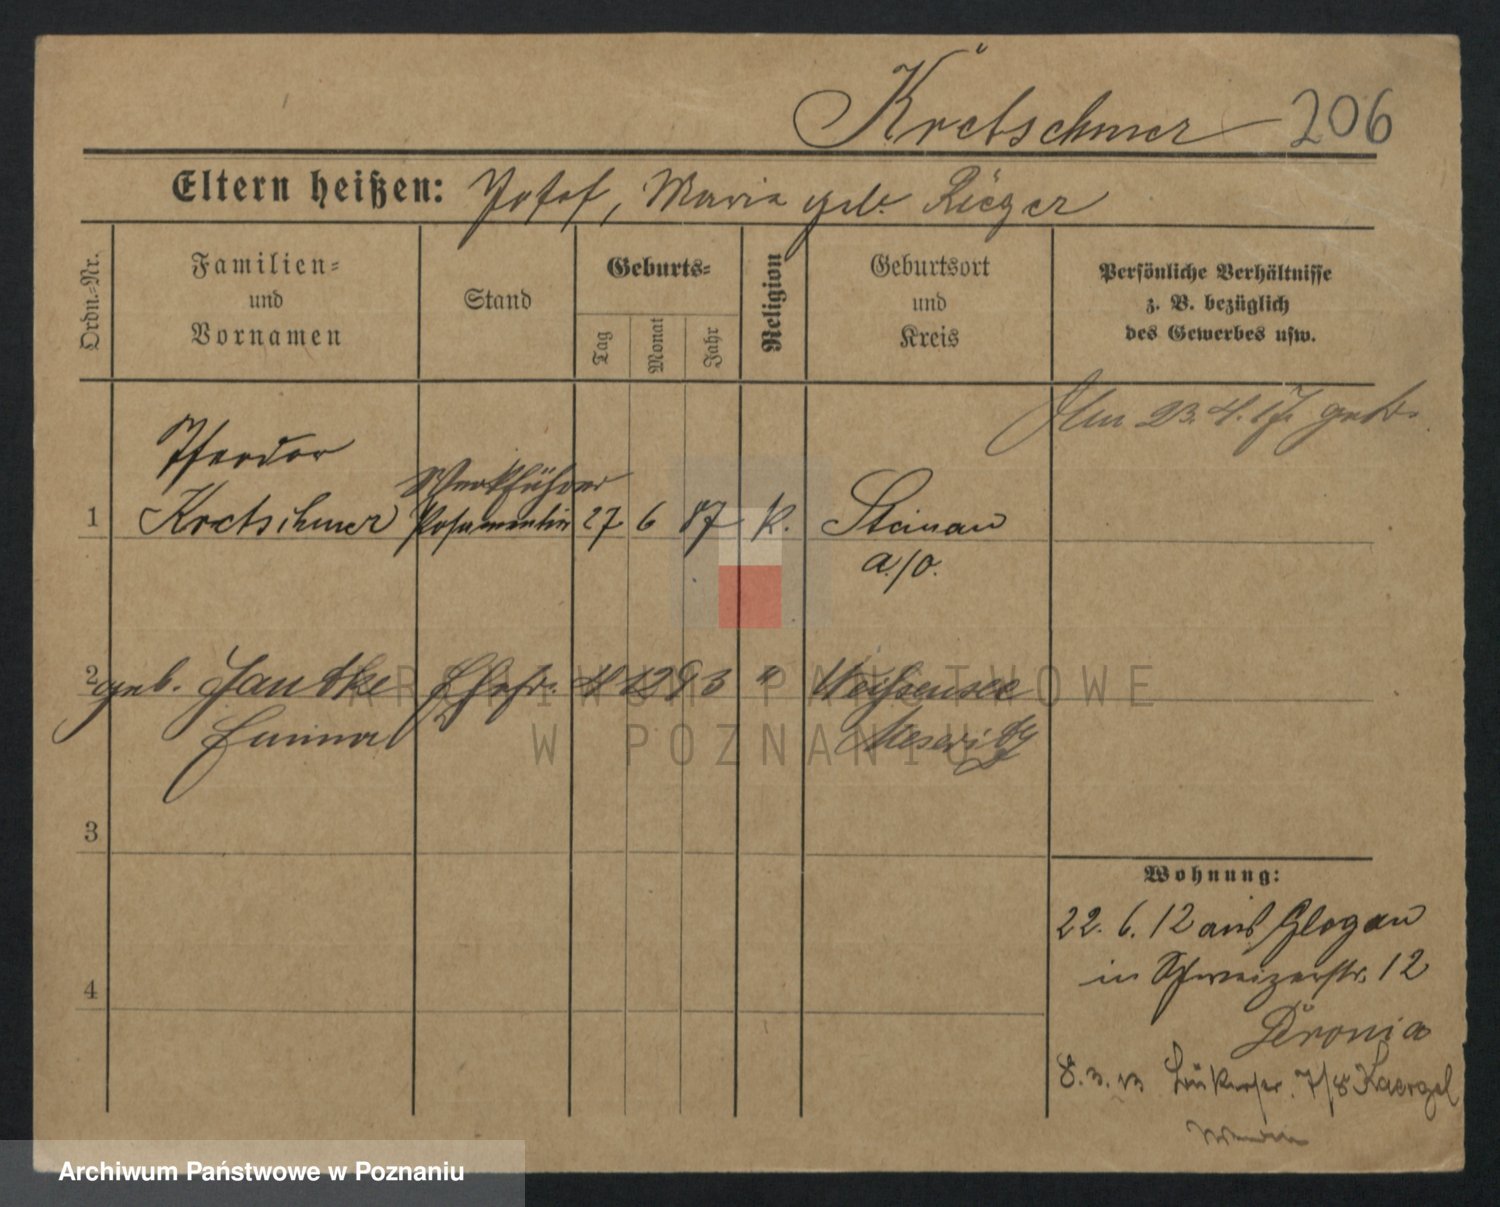 Kretschmer 206
Eltern heißen: Josef, Maria geb. Rieger
Ordn.-Nr.
Familien-
und
Vornamen
Stand
Geburts-
Tag
Monat
Jahr
Religion
Geburtsort
und
Kreis
Persönliche Verhältnisse
z. B. bezüglich
des Gewerbes usw.
Am 23.4.17
Theodor
Werkführer
1 Kretschmer Posamentier 27 6 87 k. Steinau
a./O.
2 geb. Jantke Ehefr. 4 12 93 " Weißensee
Emma Meseritz
3
4
Wohnung:
22. 6. 12 aus Glogau
in Schweizerstr. 12
8. 3. 13 7/8 Kaergel
ARCHIWUM PAŃSTWOWE
W POZNANIU
Archiwum Państwowe w Poznaniu